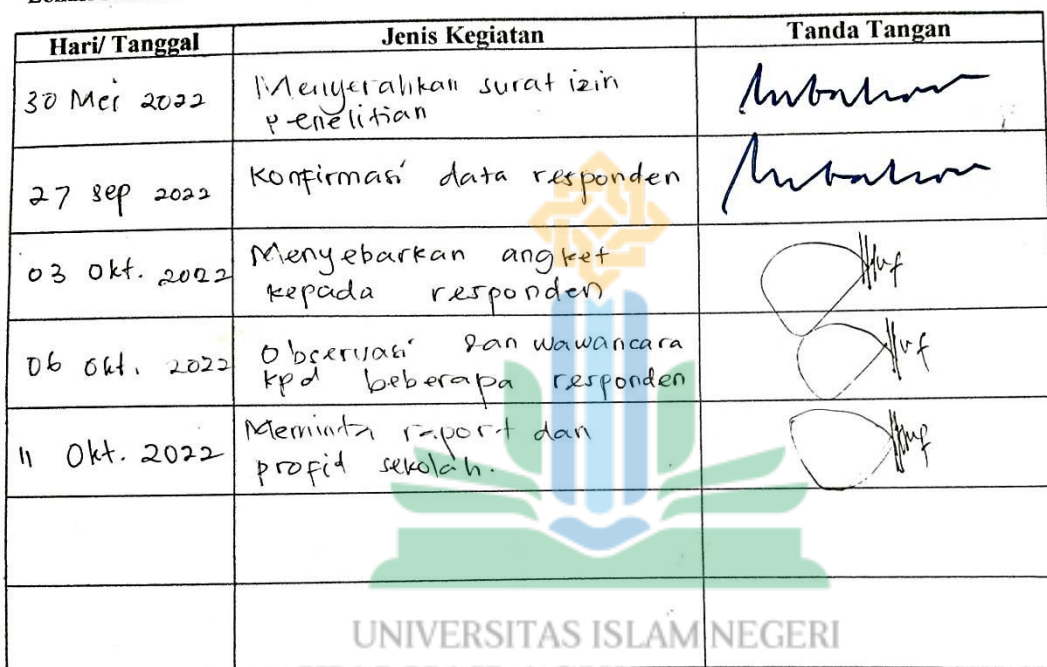 Hari/ Tanggal Jenis Kegiatan Tanda Tangan
30 Mei 2022 Menyerahkan surat izin
penelitian
27 sep 2022 Konfirmasi data responden
03 Okt. 2022 Menyebarkan angket
kepada responden
06 Okt. 2022 Observasi dan wawancara
kpd beberapa responden
11 Okt. 2022 Meminta raport dan
profil sekolah.
UNIVERSITAS ISLAM NEGERI